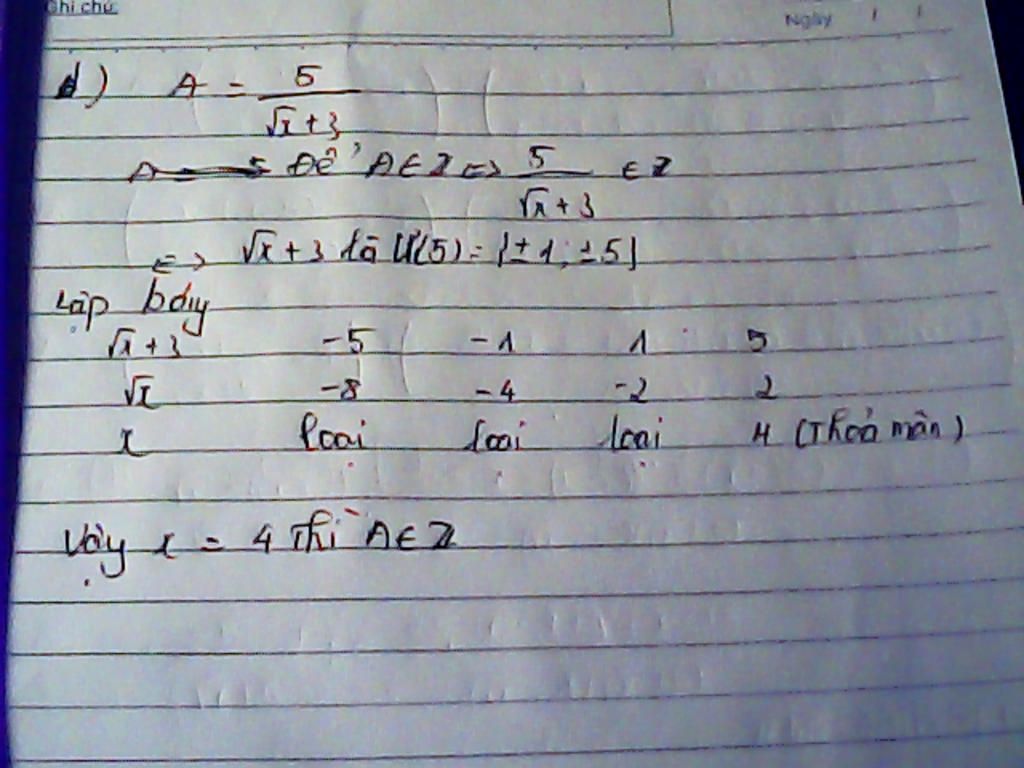 Ghi chú:
Ngày / /
d) A = 5/(√x + 3)
Để A ∈ Z <=> 5/(√x + 3) ∈ Z
<=> √x + 3 là Ư(5) = {±1; ±5}
Lập bảng
√x + 3 -5 -1 1 5
√x -8 -4 -2 2
x loại loại loại 4 (Thoả mãn)
Vậy x = 4 thì A ∈ Z